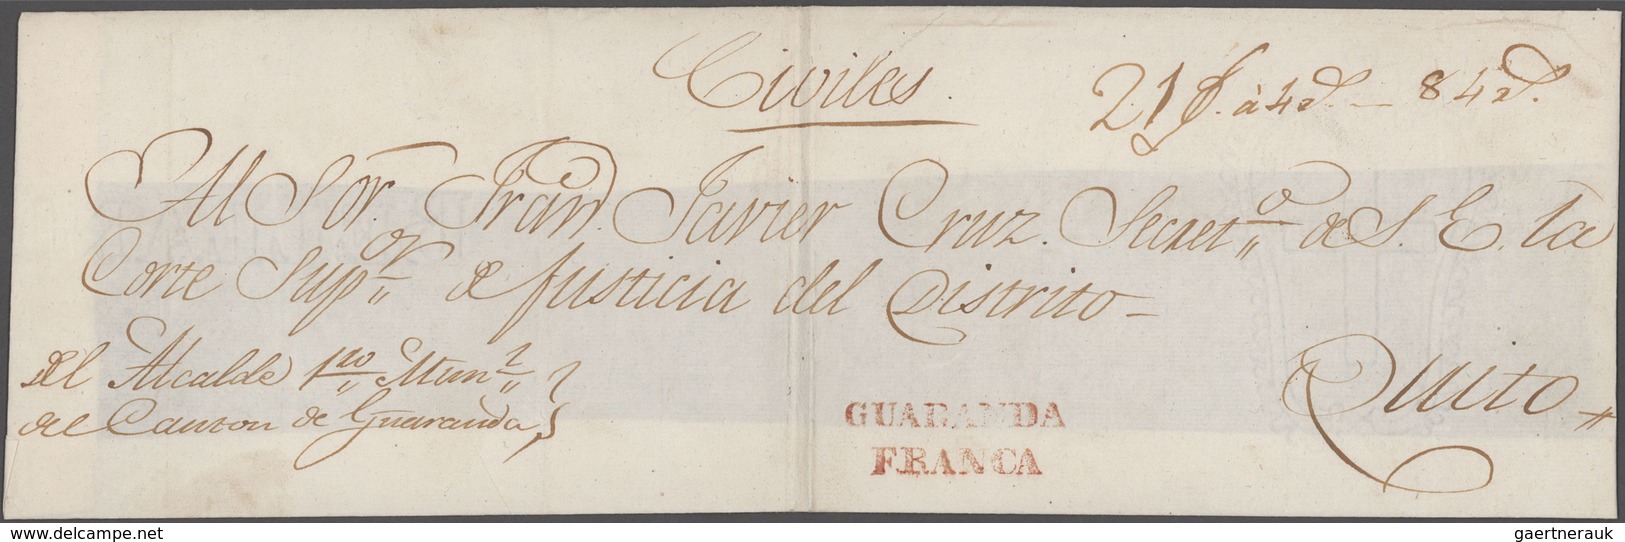 Civiles.
21 f. à 4 d. — 84 d.
Al Sor. Fran Javier Cruz. Secret.o de S. E. la
Corte Sup.or de Justicia del Distrito –
Quito
del Alcalde 1ro Mun.l
del Canton de Guaranda
GUARANDA
FRANCA
www.delcampe.net
gaertnerauk